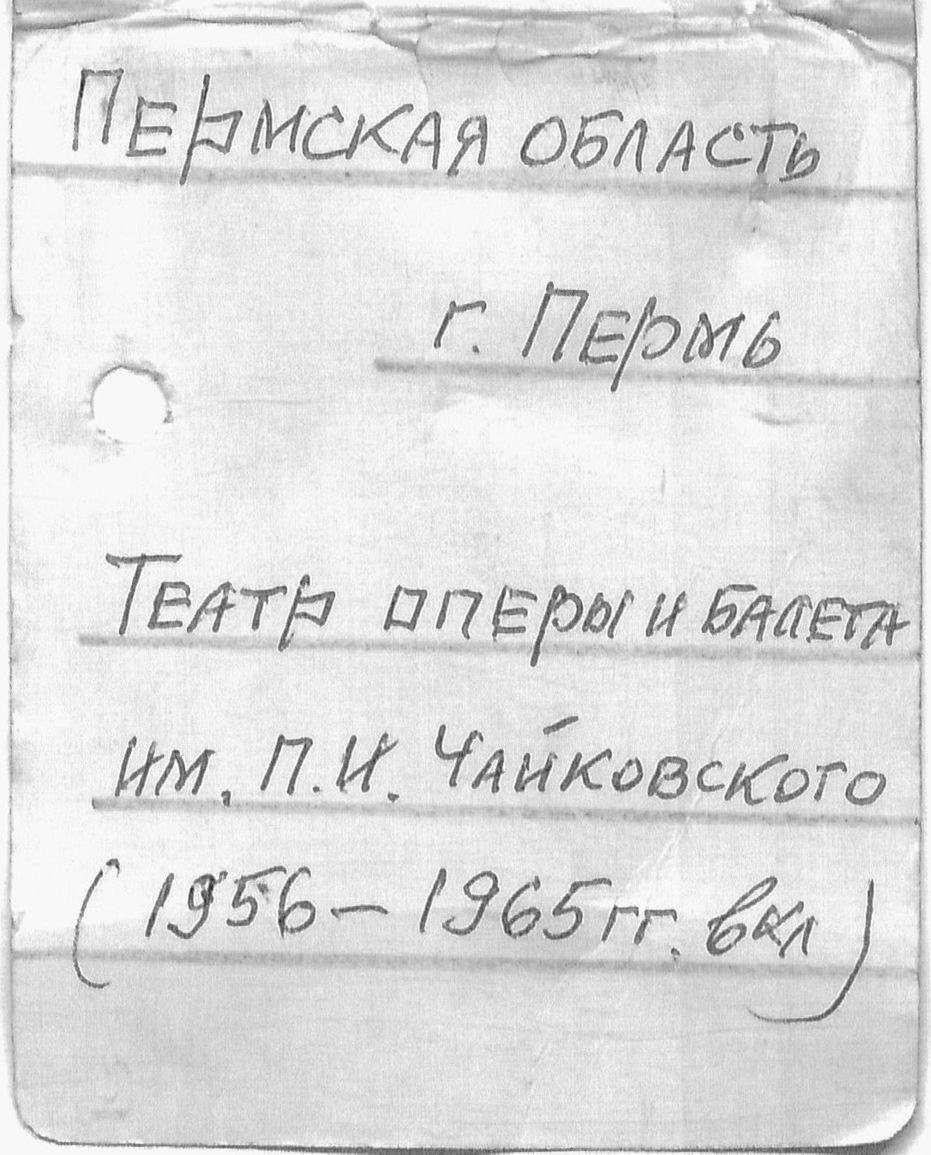 Пермская область
г. Пермь
Театр оперы и балета
им. П.И. Чайковского
(1956 – 1965 гг. вкл)